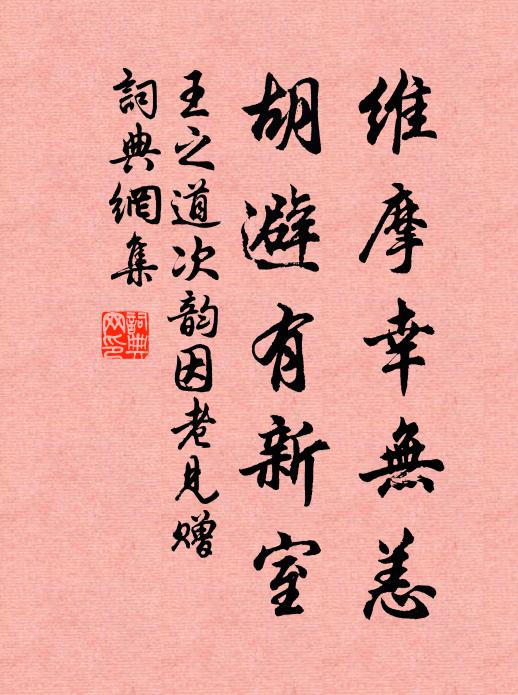 維摩幸無恙
胡避有新室
王之道次韵因老見贈
詞典網集
詞典網印